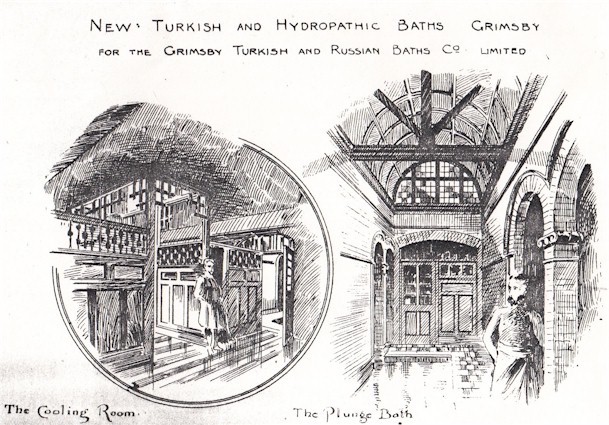 NEW TURKISH AND HYDROPATHIC BATHS GRIMSBY
FOR THE GRIMSBY TURKISH AND RUSSIAN BATHS CO LIMITED
The Cooling Room.
The Plunge Bath